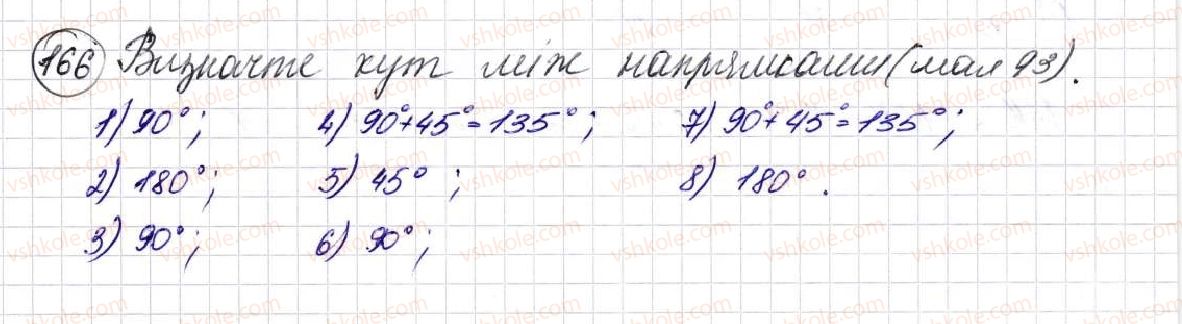 166 Визначте кут між напрямками (мал 93).
1) 90°; 4) 90°+45°=135°; 7) 90°+45°=135°;
2) 180°; 5) 45° ; 8) 180°.
3) 90°; 6) 90°;
vshkole.com